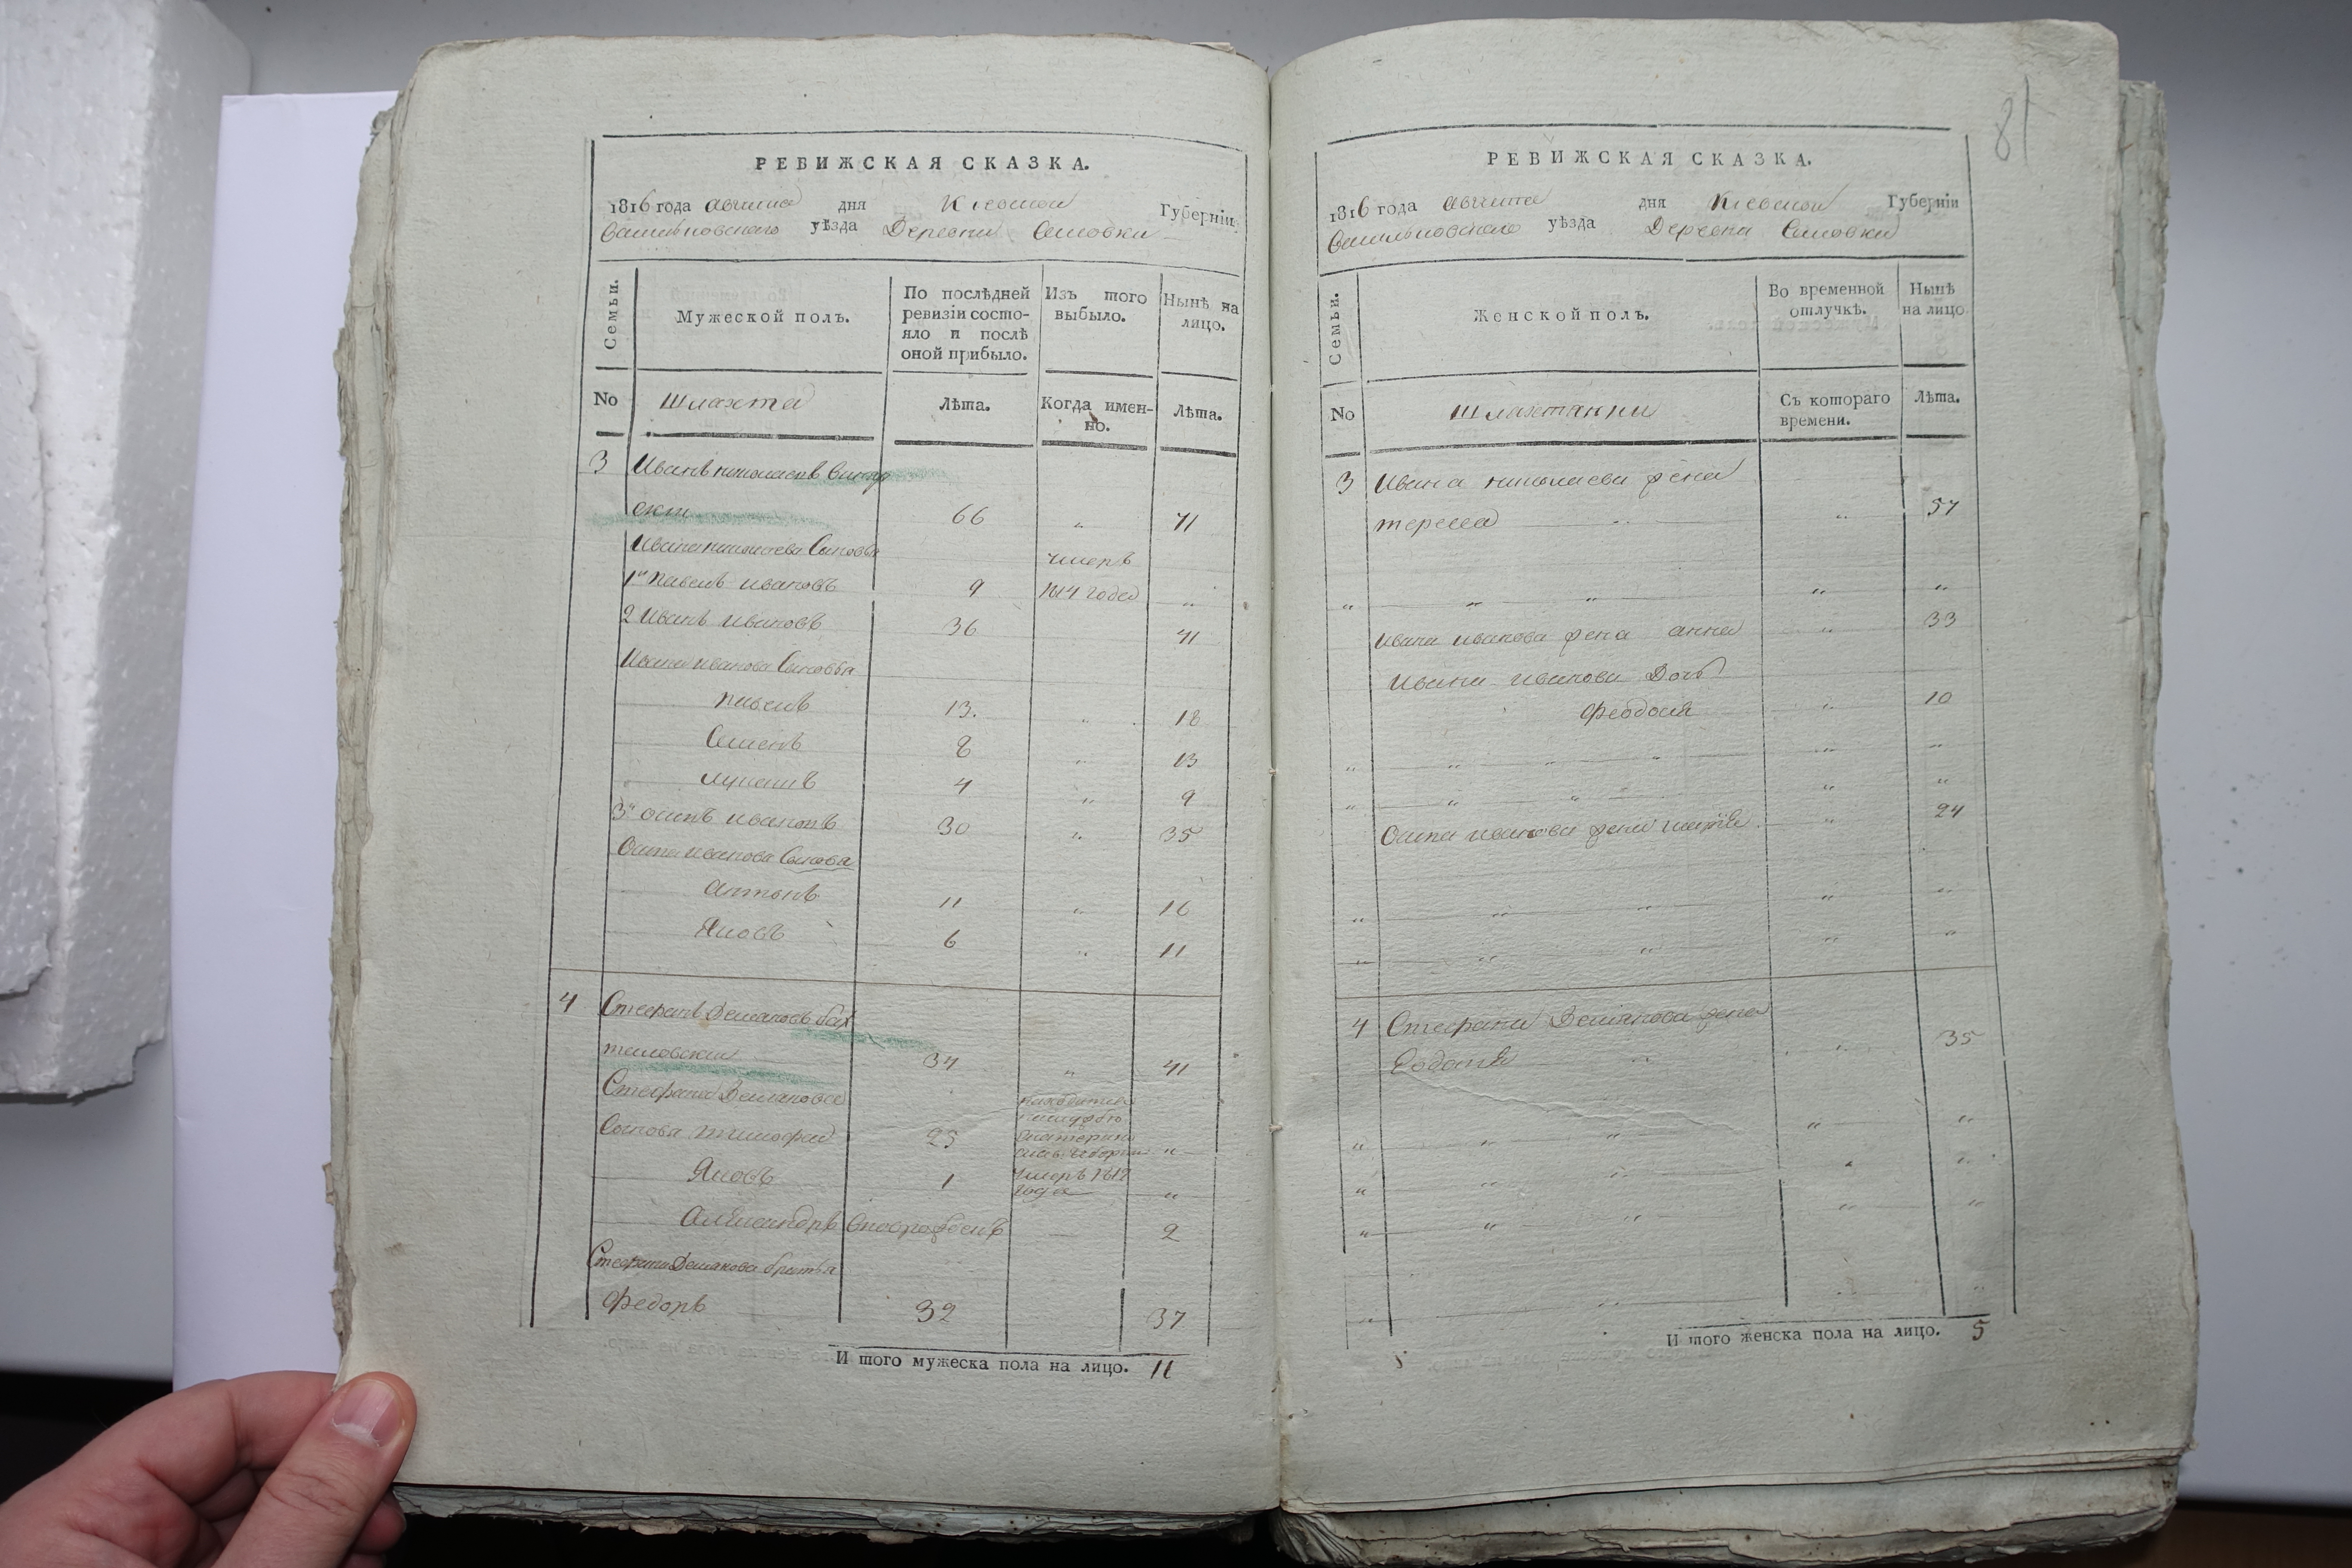 РЕВИЖСКАЯ СКАЗКА.
1816 года августа дня Киевской Губерніи,
Васильковскаго уѣзда Деревни
Семьи.
Мужеской полъ.
По послѣдней ревизіи состояло и послѣ оной прибыло.
Изъ того выбыло.
Нынѣ на лицо.
No Шляхта
Лѣта.
Когда именно.
Лѣта.
3 Иванъ николаевъ
66 " 71
Ивана николаева Сыновья
умеръ
1й павелъ ивановъ 9 1814 года "
2 Иванъ ивановъ 36 41
Ивана иванова Сыновья
павелъ 13. " 18
Семенъ 8 " 13
лукашъ 4 " 9
3й осипъ ивановъ 30 " 35
Осипа иванова Сыновья
Антонъ 11 " 16
Яковъ 6 " 11
4 Стефанъ Демяновъ
34 " 41
Стефана Демянова находится
Сынова тимофей 25 "
Яковъ 1 умеръ 1812 года "
Александръ новорожденъ 2
Стефана Демянова братья
Федоръ 32 37
И того мужеска пола на лицо. 11
81
РЕВИЖСКАЯ СКАЗКА.
1816 года августа дня Киевской Губерніи
Васильковскаго уѣзда Деревни
Семьи.
Женской полъ.
Во временной отлучкѣ.
Нынѣ на лицо
No Шляхтянки
Съ котораго времени.
Лѣта.
3 Ивана николаева жена
тереса " 57
" " " " "
Ивана иванова жена анна " 33
Ивана иванова Дочь
Феодосия " 10
" " " " "
" " " " "
Осипа иванова жена " 24
" " " " "
" " " " "
4 Стефана Демянова жена
" 35
" " " " "
" " " "
" " " " "
И того женска пола на лицо. 5
5